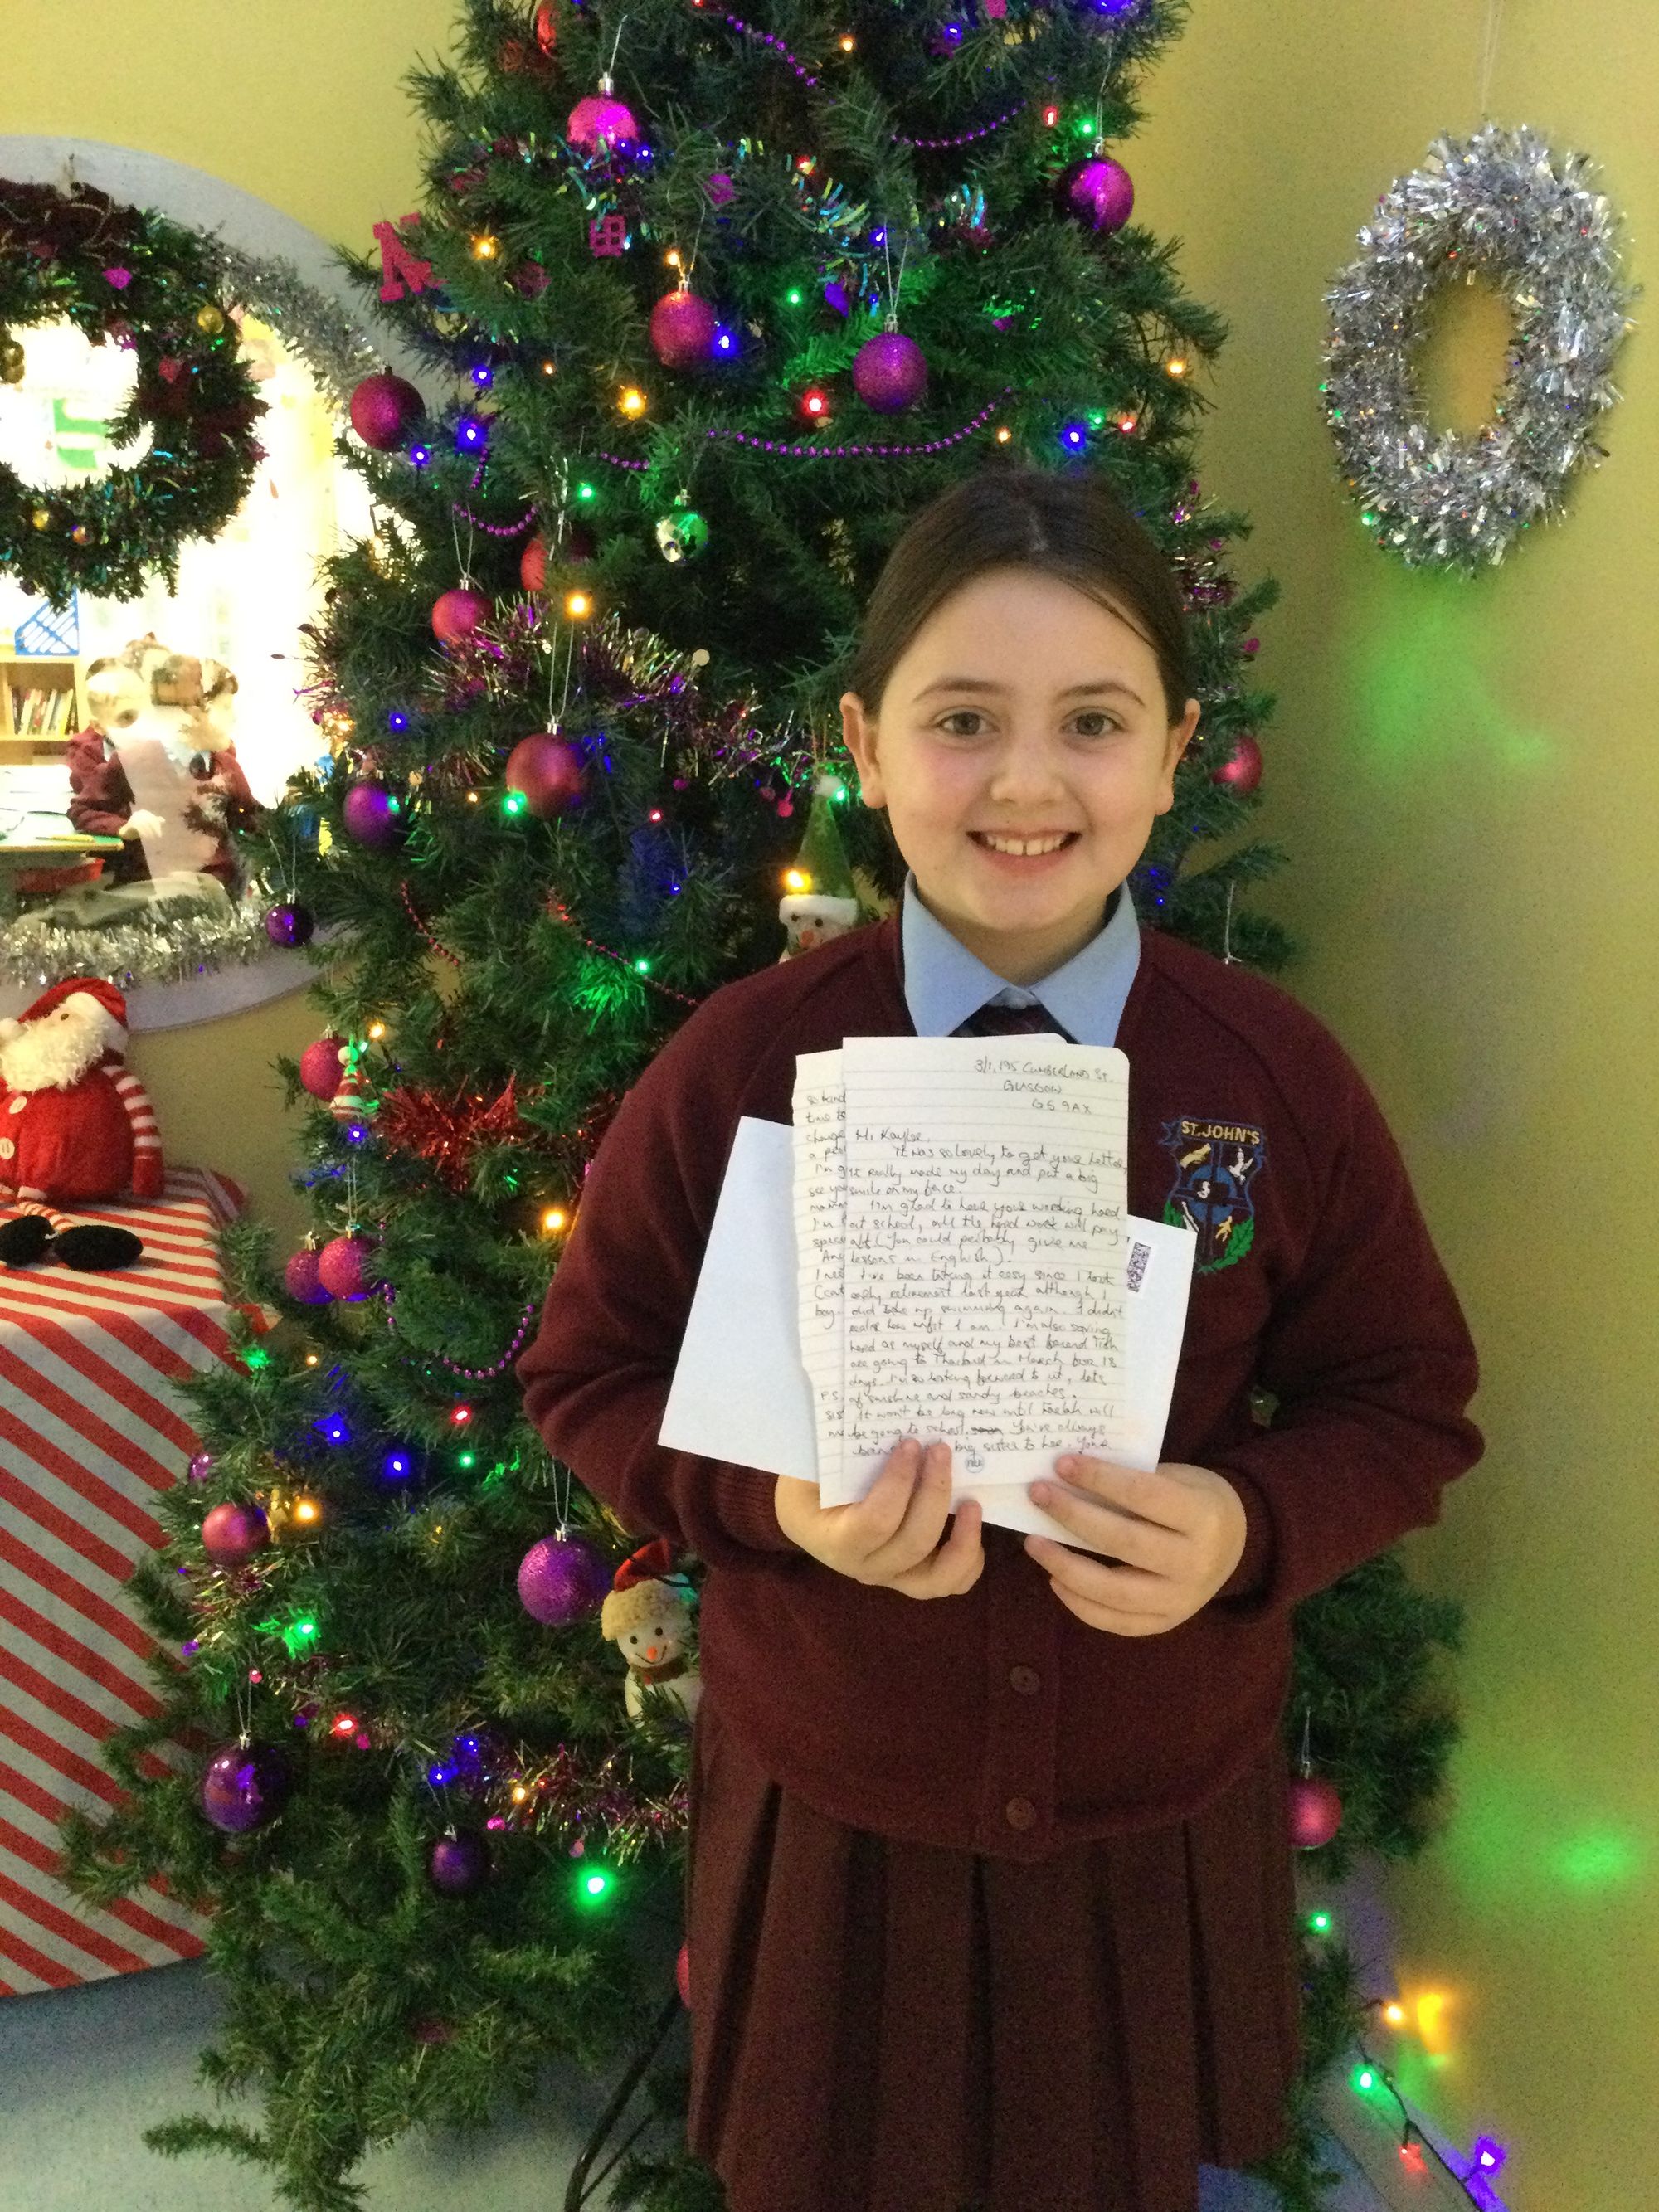 3/1, 195 CUMBERLAND ST.
GLASGOW
G5 9AX
Hi Kaylee,
It was so lovely to get your letter,
it really made my day and put a big
smile on my face.
I'm glad to hear your working hard
at school, all the hard work will pay
off! (You could probably give me
lessons in English).
I've been taking it easy since I took
early retirement last year although I
did take up swimming again. I didn't
realise how unfit I am. I'm also saving
hard as myself and my best friend Trish
are going to Thailand in March for 18
days. I'm so looking forward to it, lots
of sunshine and sandy beaches.
It won't be long now until will
be going to school. You've always
been big sister to her. Your
so hard
time to
change
a
I'm g
see yo
I'm
spec
And
I
boy
P.S.
sis
me
ST. JOHN'S